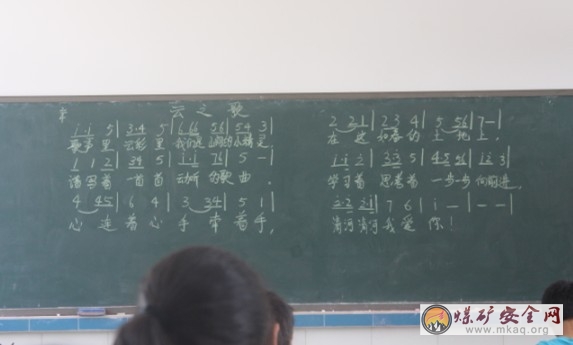 云之歌
1·1 5 | 3·4 5 | 6 66 56 | 54 3 |
歌声里 云彩里
1 1 2 | 34 5 | 1·1 76 | 5 - |
谱写着 一首首 动听的歌曲.
4 45 | 6 4 | 3 34 | 5 1 |
心连着心 手牵着手,
2 2 1 | 2 3 4 | 5 56 | 7 - |
在这 的土地上.
1·1 2 | 3·3 5 | 45 56 | 1·2 3 |
学习着 思考着 一步步向前进.
3·2 2 1 | 7 6 | 1 - | - - |
我爱你!
煤矿安全网
www.mkaq.org